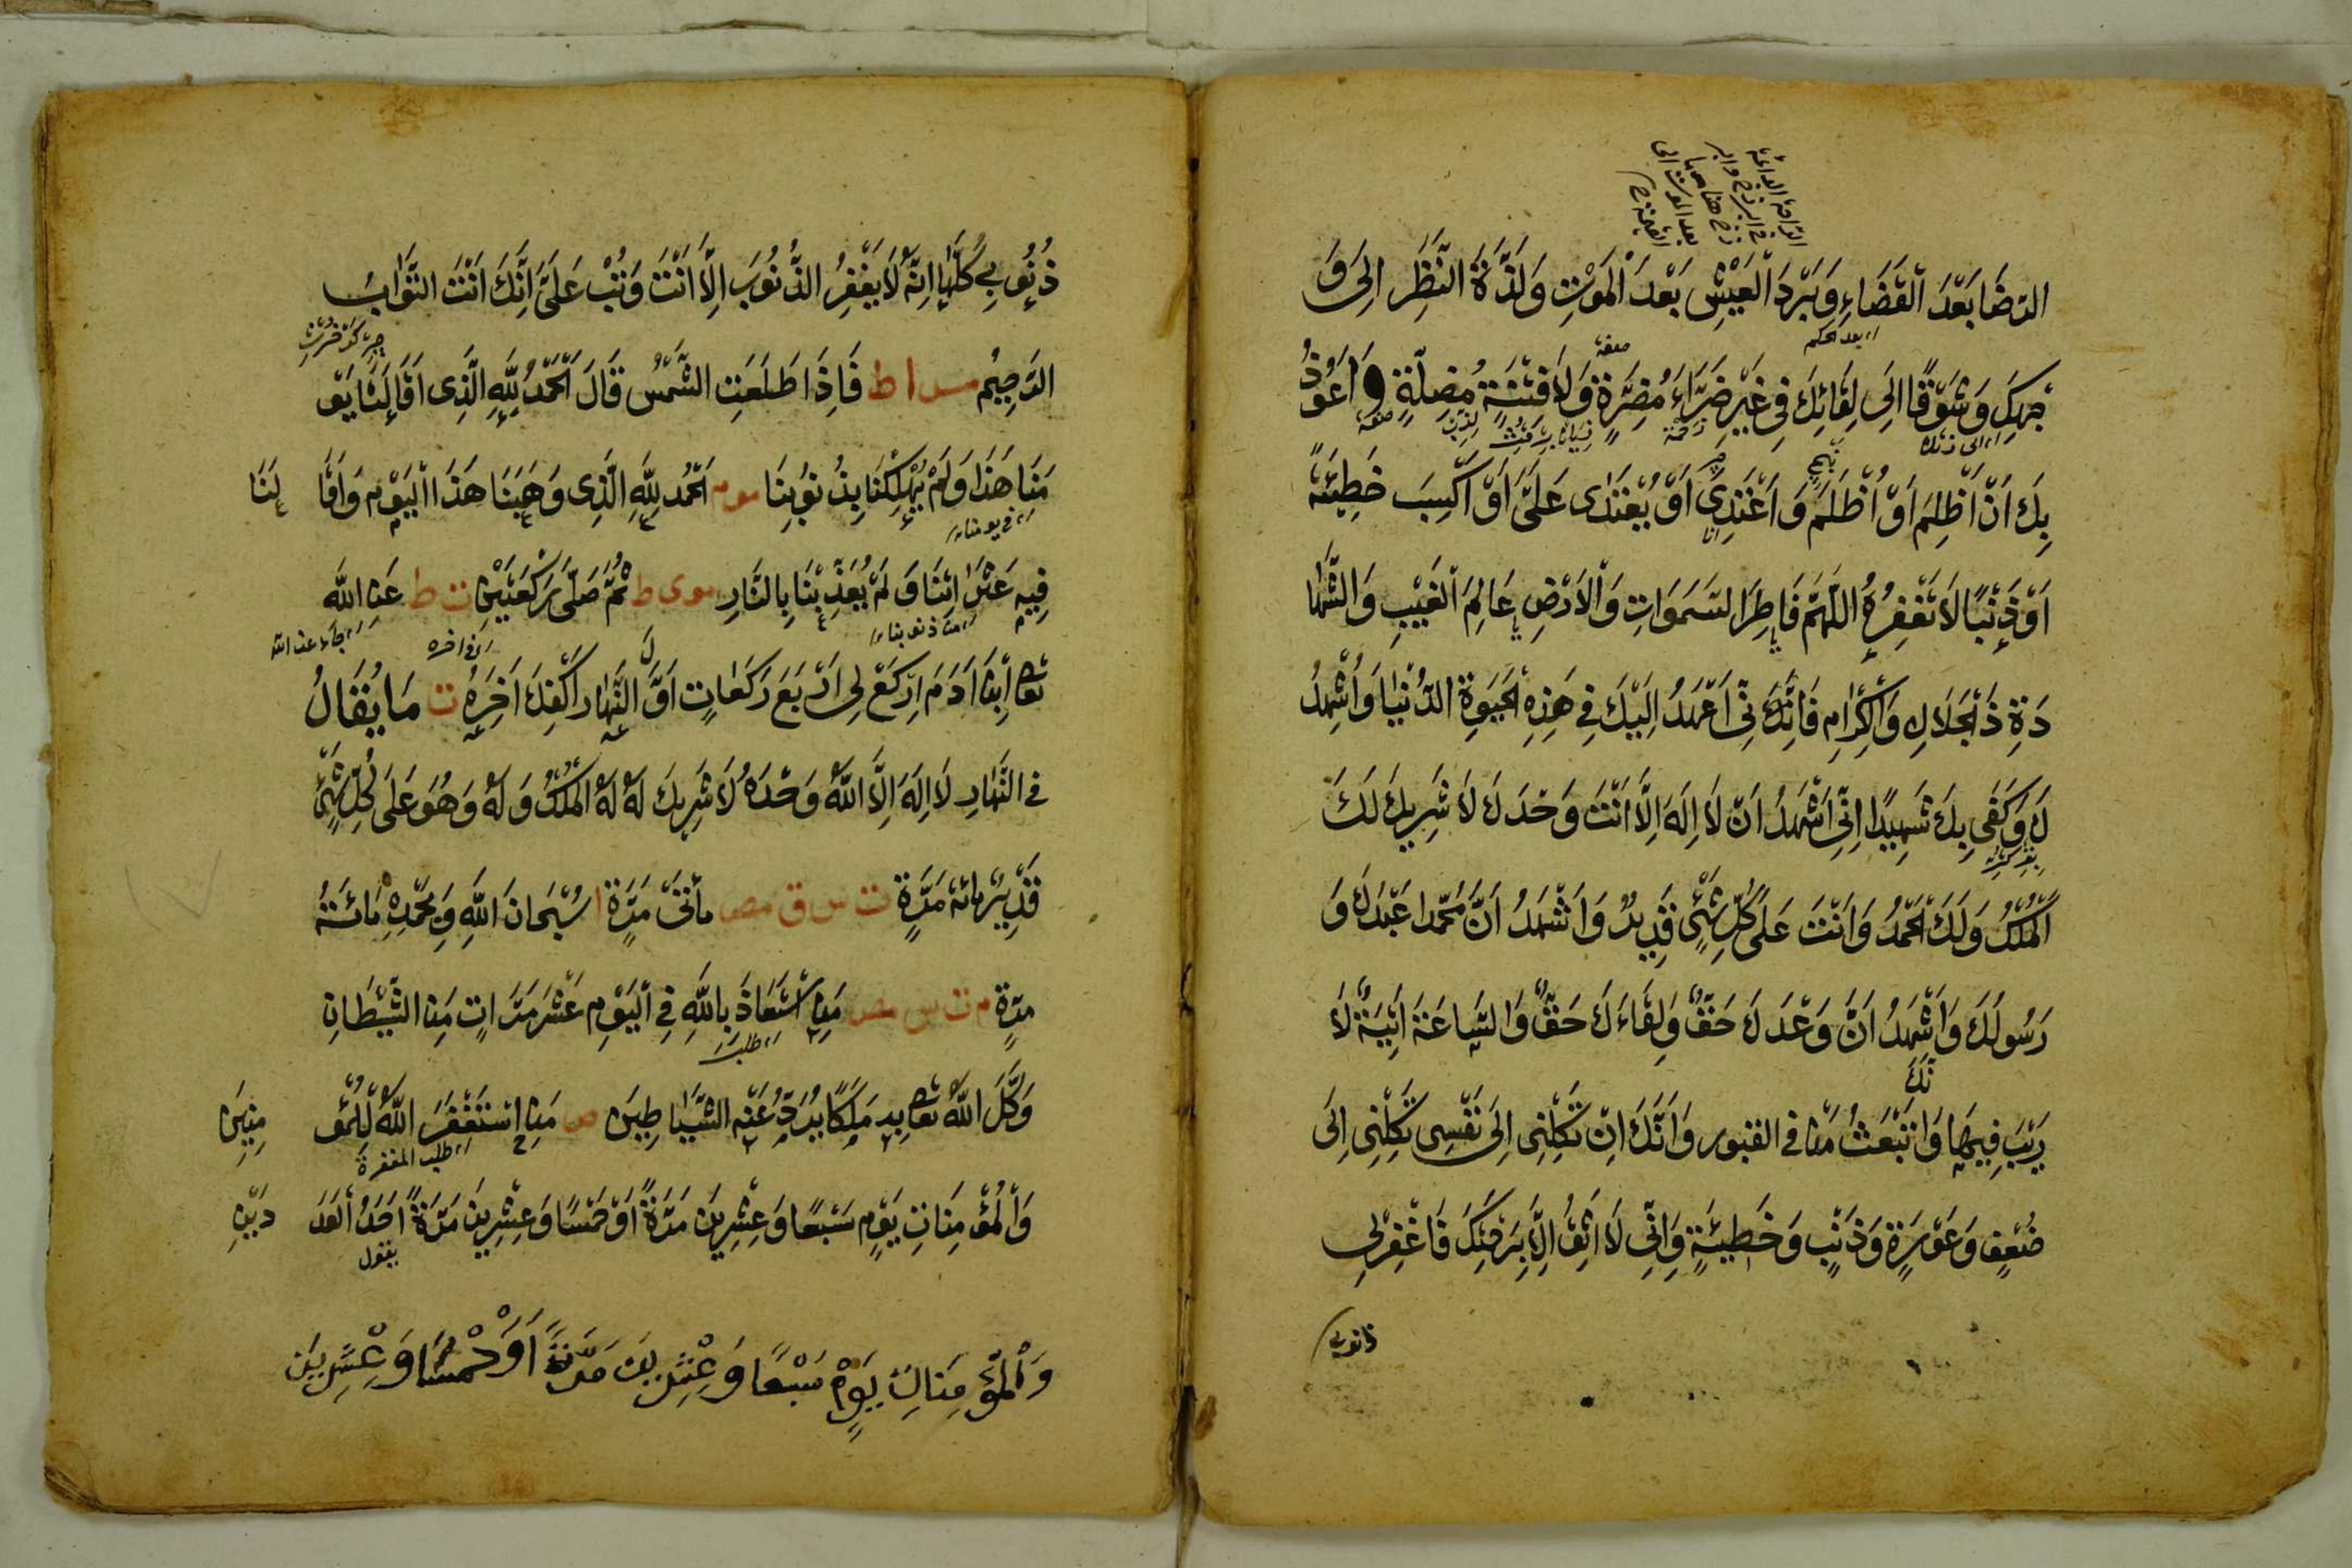 الرضا بَعْدَ الْقَضَاءِ وَبَرْدَ الْعَيْشِ بَعْدَ الْمَوْتِ وَلَذَّةَ النَّظَرِ اِلىَ وَ
جْهِكَ وَشَوْقًا اِلَى لِقَائِكَ فِي غَيْرِ ضَرَّاءَ مُضِرَّةٍ وَلَا فِتْنَةٍ مُضِلَّةٍ وَاَعُوْذُ
بِكَ اَنْ اَظْلِمَ اَوْ اُظْلَمَ وَ اَعْتَدِىَ اَوْ يُعْتَدٰى عَلَىَّ اَوْ اَكْسِبَ خَطِيْئَةً
اَوْ ذَنْبًا لَا تَغْفِرُهُ اَللّٰهُمَّ فَاطِرَ السَّمَوَاتِ وَالْاَرْضِ عَالِمَ الْغَيْبِ وَالشَّهَا
دَةِ ذَا الْجَلَالِ وَالْاِكْرَامِ فَاِنِّى اَعْهَدُ اِلَيْكَ فِي هَذِهِ الْحَيَوةِ الدُّنْيَا وَاُشْهِدُ
كَ وَكَفَى بِكَ شَهِيْدًا اِنِّى اَشْهَدُ اَنْ لَا اِلَهَ اِلَّا اَنْتَ وَحْدَكَ لَا شَرِيكَ لَكَ
لَكَ الْمُلْكُ وَلَكَ الْحَمْدُ وَاَنْتَ عَلَى كُلِّ شَىْءٍ قَدِيرٌ وَاَشْهَدُ اَنَّ مُحَمَّدًا عَبْدُكَ وَ
رَسُولُكَ وَاَشْهَدُ اَنَّ وَعْدَكَ حَقٌّ وَلِقَاءَكَ حَقٌّ وَالسَّاعَةَ اٰتِيَةٌ لَا
رَيْبَ فِيهَا وَاَنَّكَ تَبْعَثُ مَنْ فى القبور وَاَنَّكَ اِنْ تَكِلْنِى اِلَى نَفْسِى تَكِلْنِى اِلَى
ضُعْفٍ وَعَوْرَةٍ وَذَنْبٍ وَخَطِيْئَةٍ وَاِنِّى لَا اَثِقُ اِلَّا بِرَحْمَتِكَ فَاغْفِرْ لِى
ذنوبى
ذُنُوبِى كُلَّهَا اِنَّهُ لَا يَغْفِرُ الذُّنُوبَ اِلَّا اَنْتَ وَتُبْ عَلَىَّ اِنَّكَ اَنْتَ التَّوَّابُ
الرَّحِيْمُ مس ا ط فَاِذَا طَلَعَتِ الشَّمْسُ قَالَ اَلْحَمْدُ لِلّٰهِ الَّذِى اَقَالَنَا يَوْ
مَنَا هَذَا وَلَمْ يُهْلِكْنَا بِذُنُوبِنَا مو م اَلْحَمْدُ لِلّٰهِ الَّذِى وَهَبَنَا هَذَا الْيَوْمَ وَاَقَا لَنَا
فِيهِ عَثَرَاتِنَا وَلَمْ يُعَذِّبْنَا بِالنَّارِ مو ى ط ثُمَّ صَلَّى رَكْعَتَيْنِ ت ط عَنِ اللّٰهِ
تعا اِبْنَ اٰدَمَ اِرْكَعْ لِى اَرْبَعَ رَكَعَاتٍ اَوَّلَ النَّهَارِ اَكْفِكَ اٰخِرَهُ ت مَا يُقَالُ
فى النَّهَارِ لَا اِلَهَ اِلَّا اللّٰهُ وَحْدَهُ لَا شَرِيكَ لَهُ لَهُ الْمُلْكُ وَلَهُ وَهُوَ عَلَى كُلِّ شَىْءٍ
قَدِيْرٌ مِائَةَ مَرَّةٍ خ ت س ق مص مِأَتَىْ مَرَّةٍ ا سُبْحَانَ اللّٰهِ وَبِحَمْدِهِ مِائَةَ
مرّةٍ م ت س مص مَنِ اسْتَعَاذَ بِاللّٰهِ فِى الْيَوْمِ عَشْرَ مَرَّاتٍ مِنَ الشَّيْطَانِ
وَكَّلَ اللّٰهُ تعا بِهِ مَلَكًا يَرُدُّ عَنْهُ الشَّيَاطِيْنَ ص مَنِ اسْتَغْفَرَ اللّٰهَ لِلْمُؤْ مِنِيْنَ
وَالْمُؤْمِنَاتِ يَوْمٍ سَبْعًا وَعِشْرِيْنَ مَرَّةً اَوْ خَمْسًا وَعِشْرِيْنَ مَرَّةً اَحَدُ الْعَدَ دَيْنِ
وَالْمُؤْمِنَاتِ يَوْمٍ سَبْعًا وَعِشْرِيْنَ مَرَّةً اَوْ خَمْسًا وَعِشْرِيْنَ